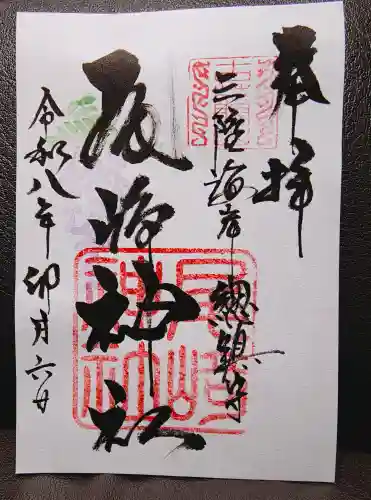 奉拝
三陸海岸總鎮守
尾崎神社
令和八年卯月六日
尾崎神社